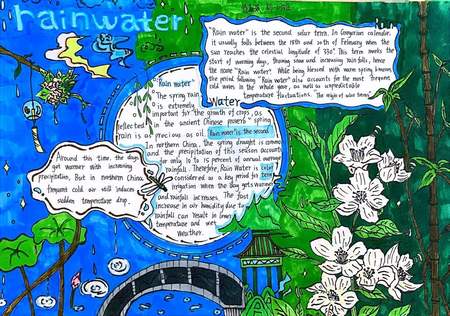 rainwater
"Rain water" is the second solar term. In Gregorian calendar,
it usually falls between the 18th and 20th of February when the
sun reaches the celestial longitude of 330°. This term marks the
start of warmy days, thawing snow and increasing rain falls, hence
the name "Rain water". While being blessed with warm spring breezes,
the period following "Rain water" also accounts for the most frequent
cold waves in the whole year, as well as unpredictable
temperature fluctuations. The origin of solar terms
"Rain water"
The spring rain
is extremely
important for the growth of crops, as
Water
reflected in the ancient Chinese proverb "spring
rain is as precious as oil. "Rain water" is the second
In northern China, the spring drought is common
and the precipitation of this season accounts
for only 10 to 15 percent of annual average
rainfall. Therefore, Rain Water is
considered as a key period for
irrigation when the day gets warmer
and rainfall increases. The fast
increase in air humidity due to
rainfall can result in lower
temperature and wet
weather.
Around this time, the days
get warmer with increasing
precipitation. But in northern China,
frequent cold air still induces
sudden temperature drop.